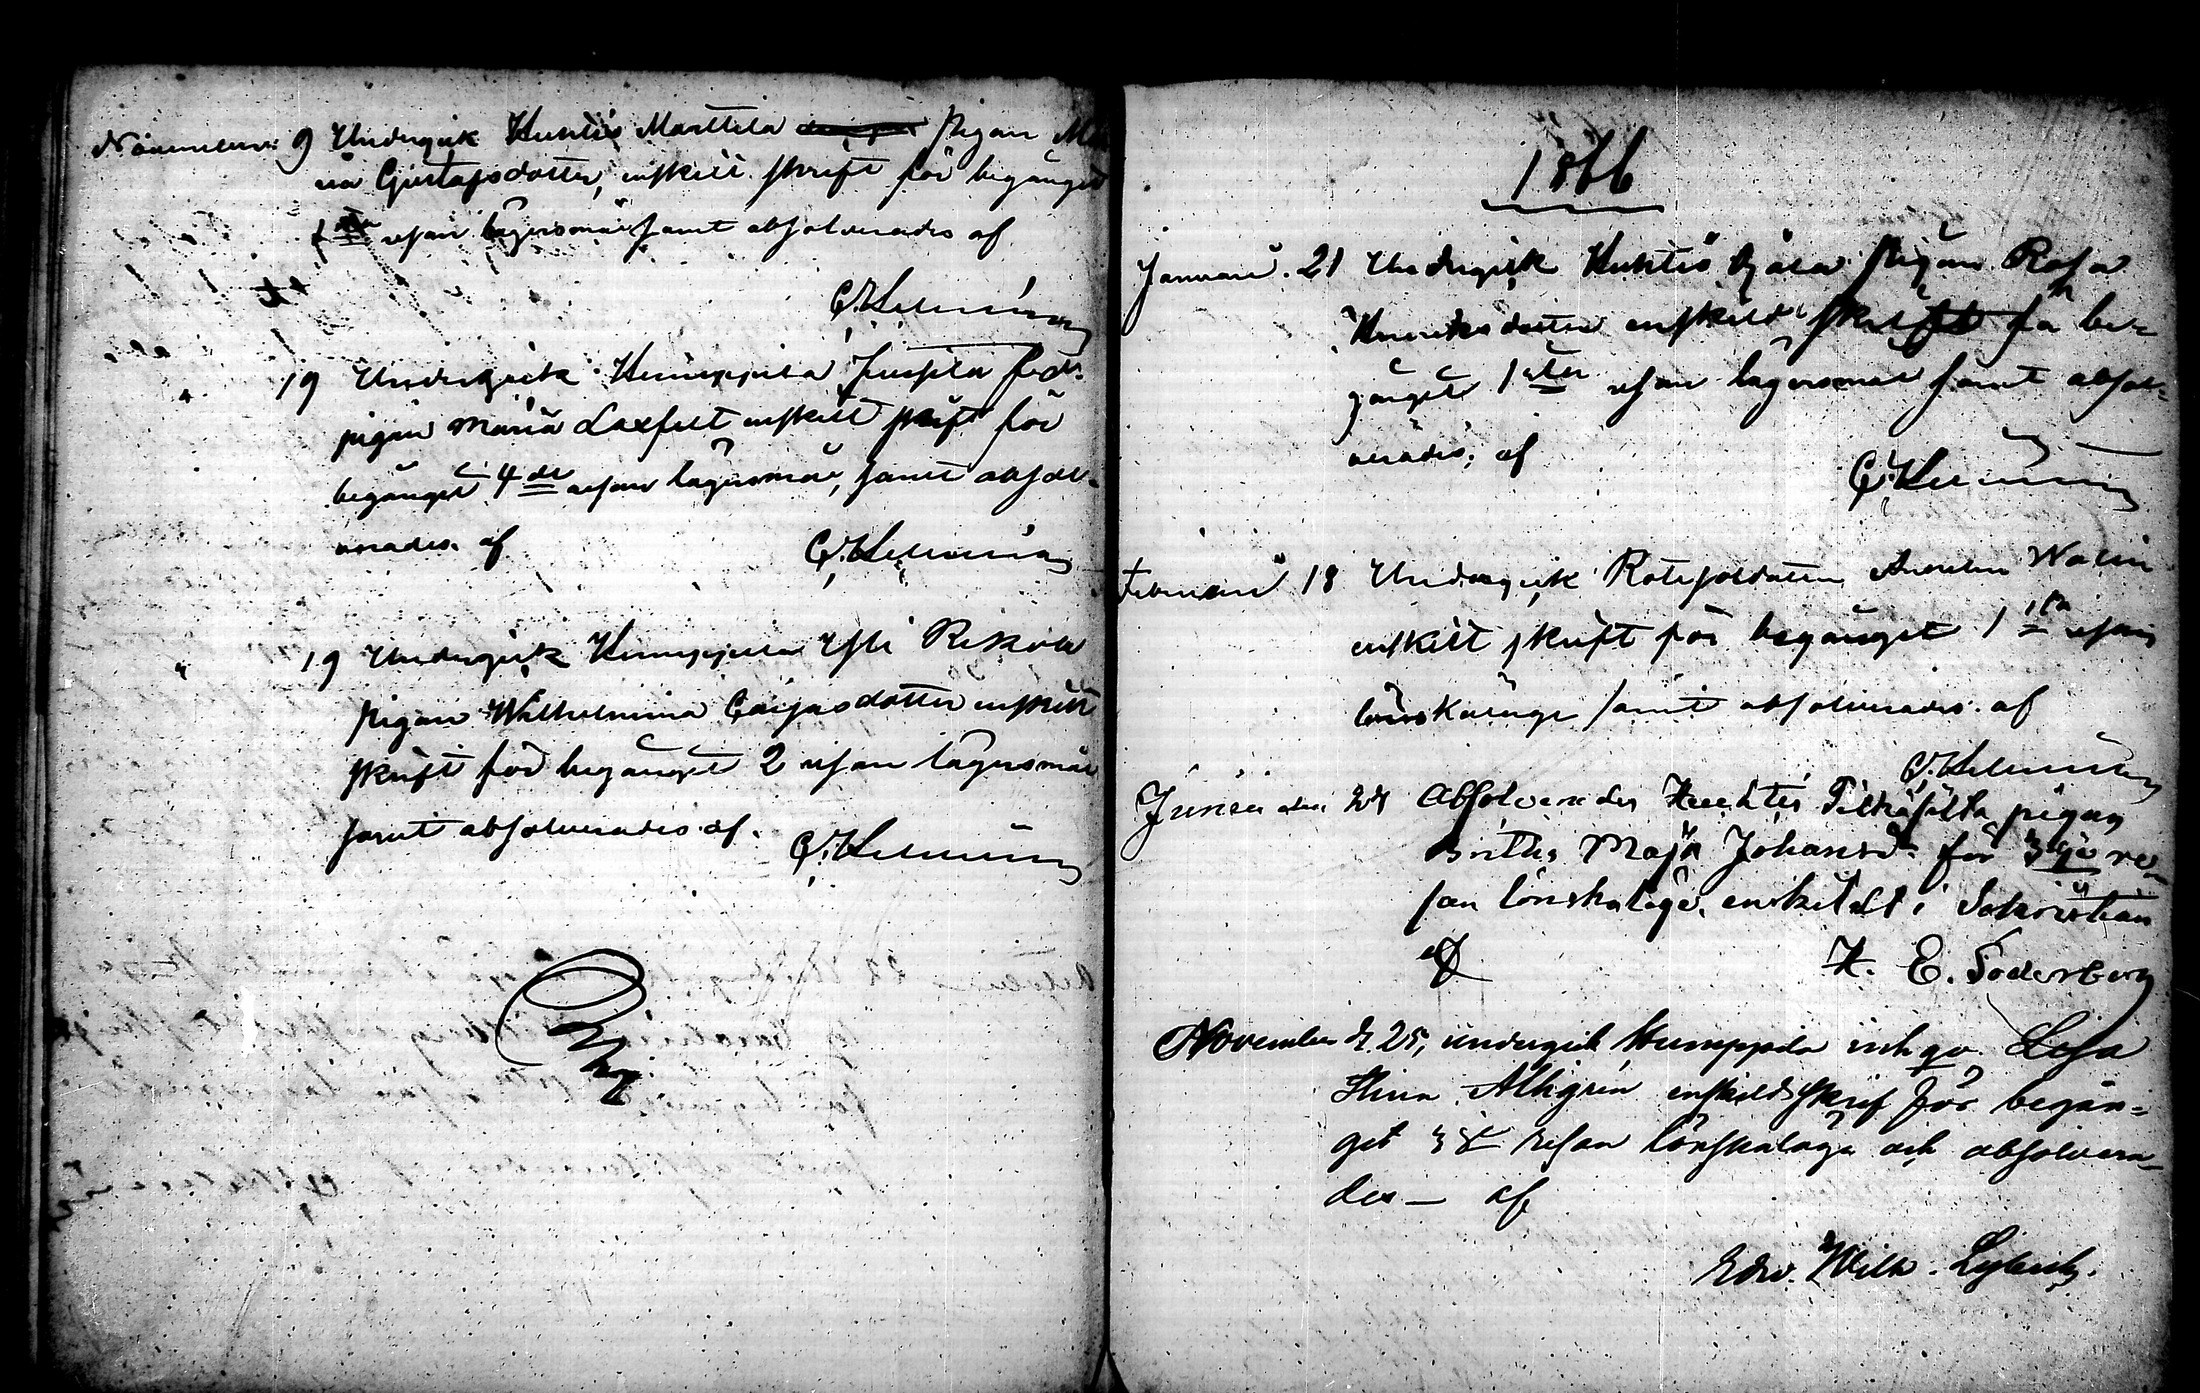 November 9 Undergick Huhtis Marttila pigan Ma
ria Gustafsdotter, enskilt skrift för begånget
1sta resan lägersmål samt absolverades af
C. Hellmin
" 19 Undergick Humppila
pigan Maria Laxfelt enskilt skrift för
begånget 4de resan lägersmål, samt absol-
verades af C. Hellmin
" 19 Undergick Humppila Yli Rekola
pigan Wilhelmina Caisasdotter enskilt
skrift för begånget 2 resan lägersmål
samt absolverades af C. Hellmin
1866
Januari 21 Undergick Huhtis pigan Rosa
Henriksdotter enskild skrift för be-
gånget 1sta resan lägersmål samt absol-
verades af
C. Hellmin
Februari 18 Undergick Rotesoldaten Walin
enskilt skrift för begånget 1sta resan
lönskaläge samt absolverades af
C. Hellmin
Junii den 24 Absolverades pigan
Maja Johansd: för 3dje re-
san lönskaläge, enskildt i Sakristian
af H. E. Söderberg
November d. 25, undergick Humppila inh.qv. Lisa
Stina Alhgrén enskild skrif för begån-
get 3dje resan lönskaläge och absolvera-
des — af
Edv. Wilh.